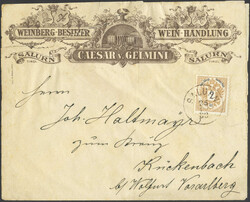 WEINBERG-BESITZER WEIN-HANDLUNG
SALURN SALURN
CAESAR v. GELMINI
Herrn
Joh. Haltmayr
zum Kreuz
Rickenbach
b/ Wolfurt Vorarlberg
2